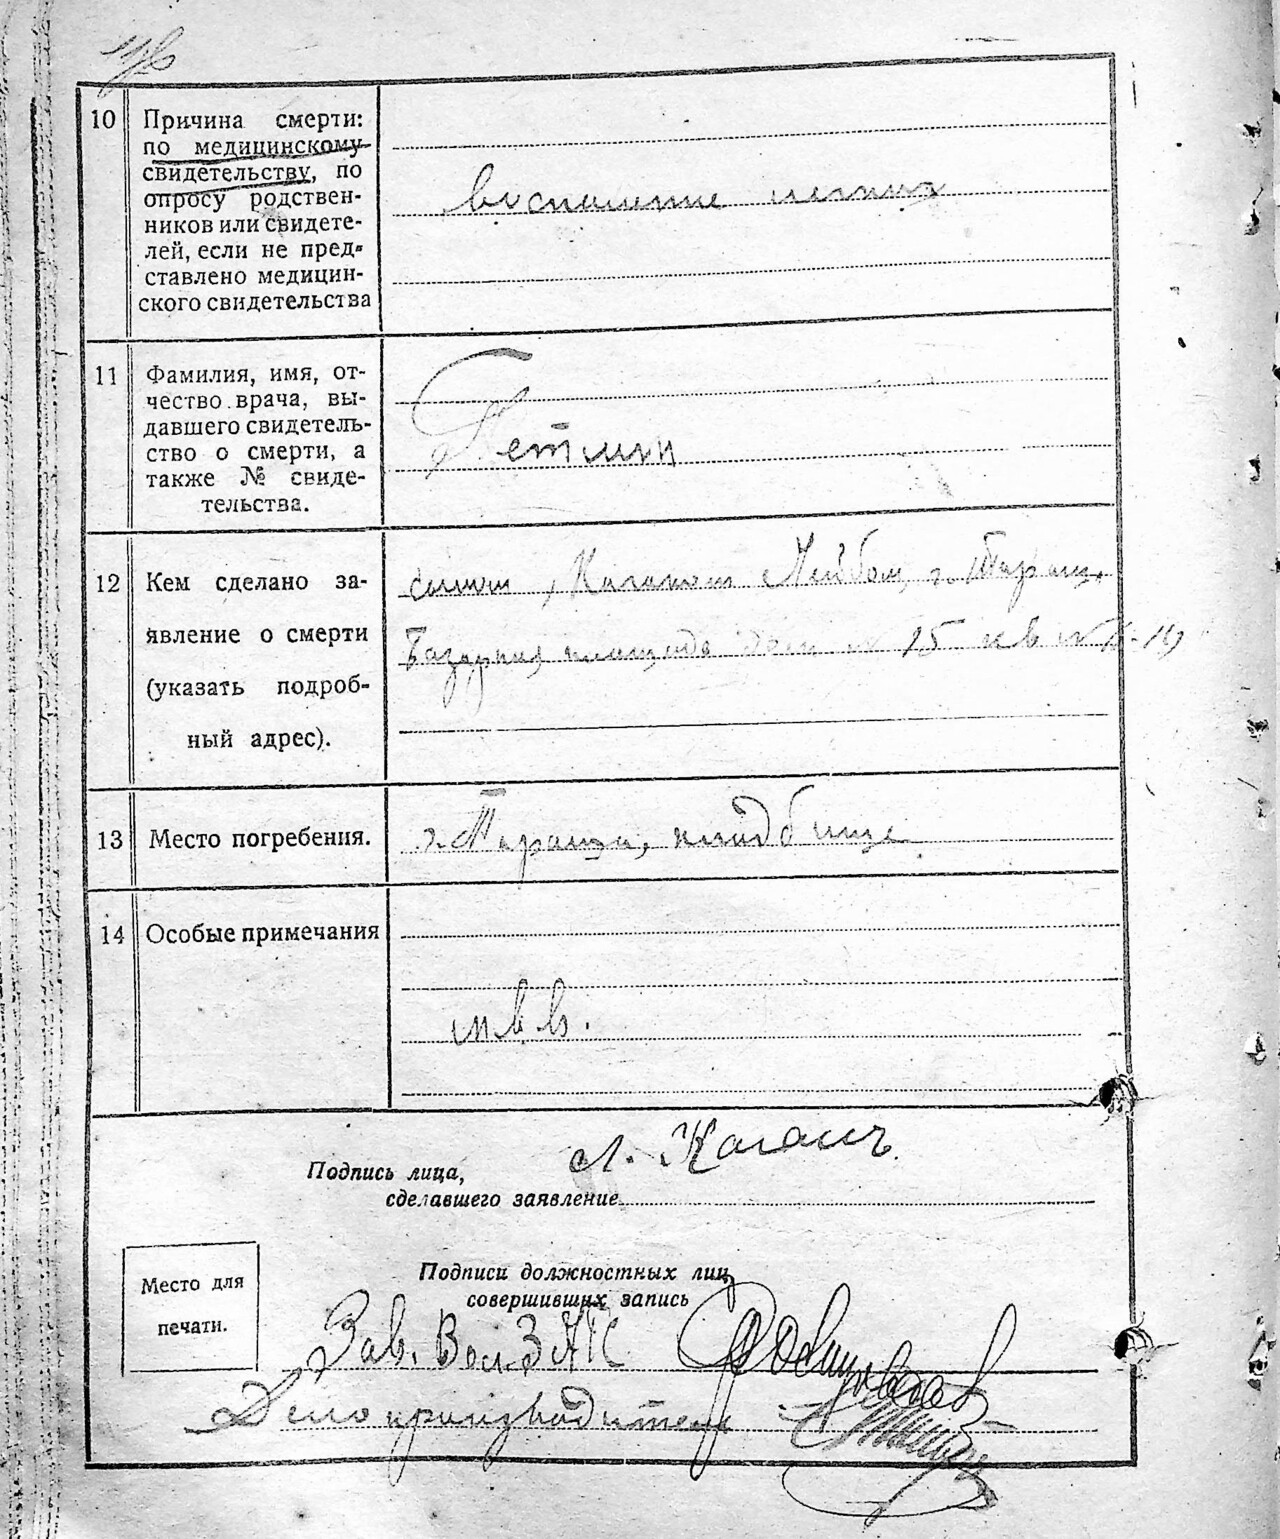 10
Причина смерти:
по медицинскому
свидетельству, по
опросу родствен-
ников или свидете-
лей, если не пред-
ставлено медицин-
ского свидетельства
воспаление легких
11
Фамилия, имя, от-
чество врача, вы-
давшего свидетель-
ство о смерти, а
также № свиде-
тельства.
12
Кем сделано за-
явление о смерти
(указать подроб-
ный адрес).
сыном, Каганом Лейбом, г. Таращ.
Базарная площадь дом № 15 кв №
13
Место погребения.
г. Тараща, кладбище
14
Особые примечания
Л. Каганъ
Подпись лица,
сделавшего заявление
Место для
печати.
Подписи должностных лиц
совершивших запись
Зав. Вол. ЗАГС
Делопроизводитель